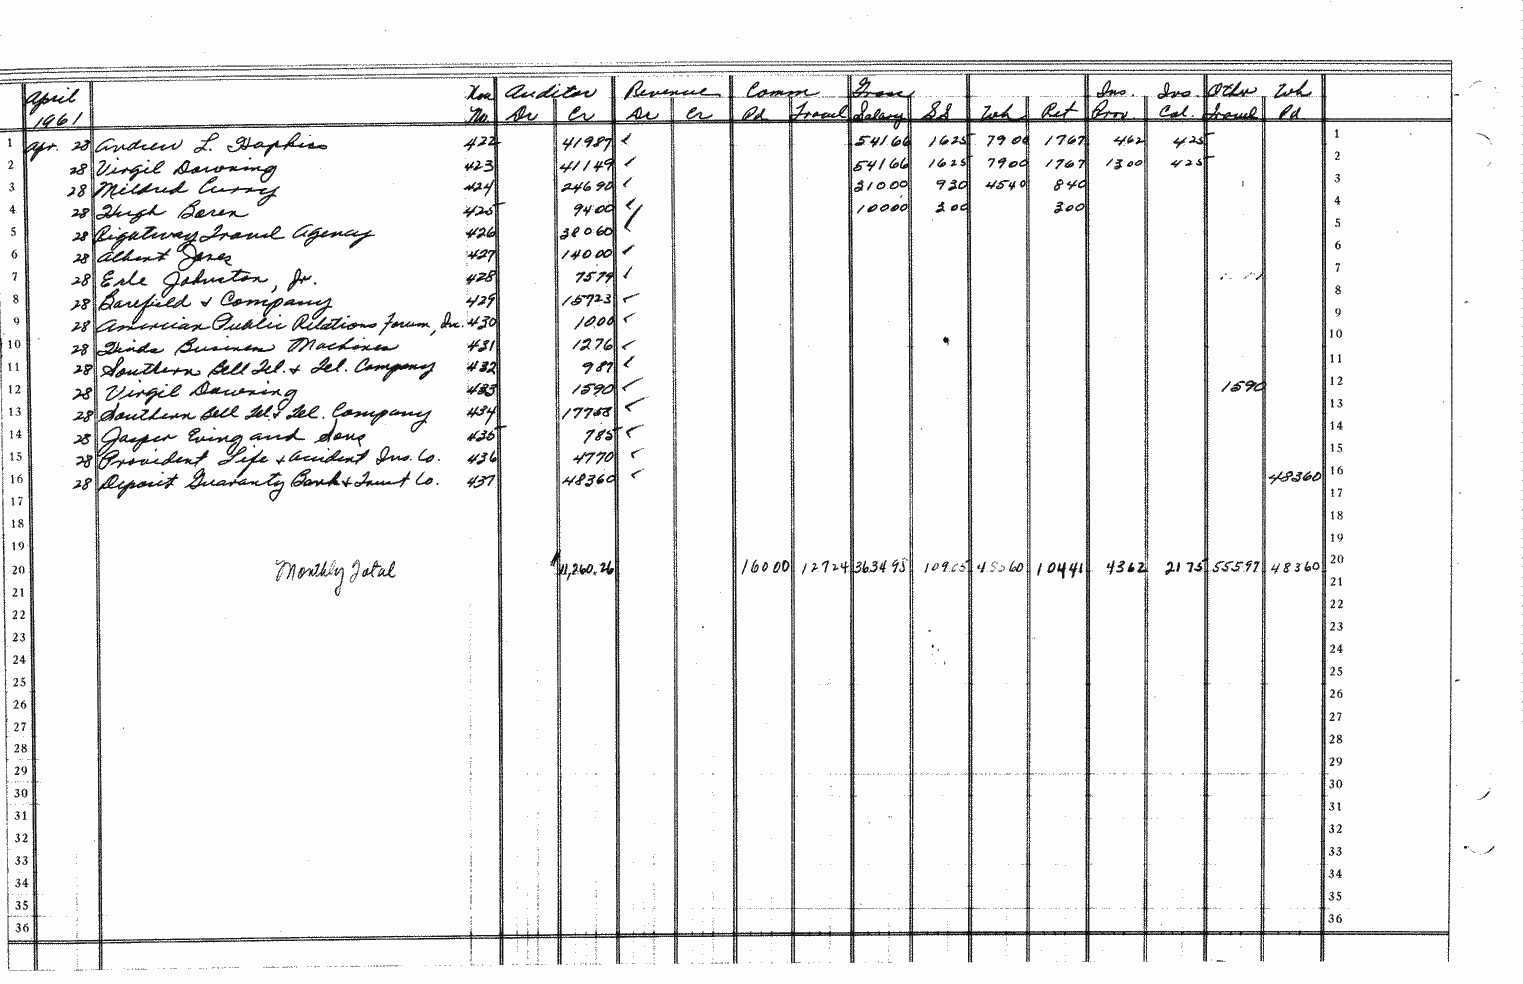 April Vou Auditor Revenue Comm Gross Ins. Ins Other Wh
1961 No. Dr Cr Dr Cr Pd Travel Salary SS Wh Ret Prov. Col. Travel Pd.
1 Apr. 28 Andrew L. Hopkins 422 41987 ✓ 54166 1625 7900 1767 462 425 1
2 28 Virgil Downing 423 41149 ✓ 54166 1625 7900 1767 1300 425 2
3 28 Mildred Curry 424 24690 ✓ 31000 930 4540 840 3
4 28 Hugh Boren 425 9400 ✓ 10000 300 300 4
5 28 Rightway Travel Agency 426 38060 ✓ 5
6 28 Albert Jones 427 14000 ✓ 6
7 28 Erle Johnston, Jr. 428 7579 ✓ 7
8 28 Barefield & Company 429 15723 ✓ 8
9 28 American Public Relations Forum, Inc. 430 1000 ✓ 9
10 28 Hinds Business Machines 431 1276 ✓ 10
11 28 Southern Bell Tel. & Tel. Company 432 987 ✓ 11
12 28 Virgil Downing 433 1590 ✓ 1590 12
13 28 Southern Bell Tel & Tel. Company 434 17758 ✓ 13
14 28 Jasper Ewing and Sons 435 785 ✓ 14
15 28 Provident Life & Accident Ins. Co. 436 4770 ✓ 15
16 28 Deposit Guaranty Bank & Trust Co. 437 48360 ✓ 48360 16
17 17
18 18
19 19
20 Monthly Total 11,260.26 16000 12724 363498 10905 48360 10441 4362 2175 55597 48360 20
21 21
22 22
23 23
24 24
25 25
26 26
27 27
28 28
29 29
30 30
31 31
32 32
33 33
34 34
35 35
36 36